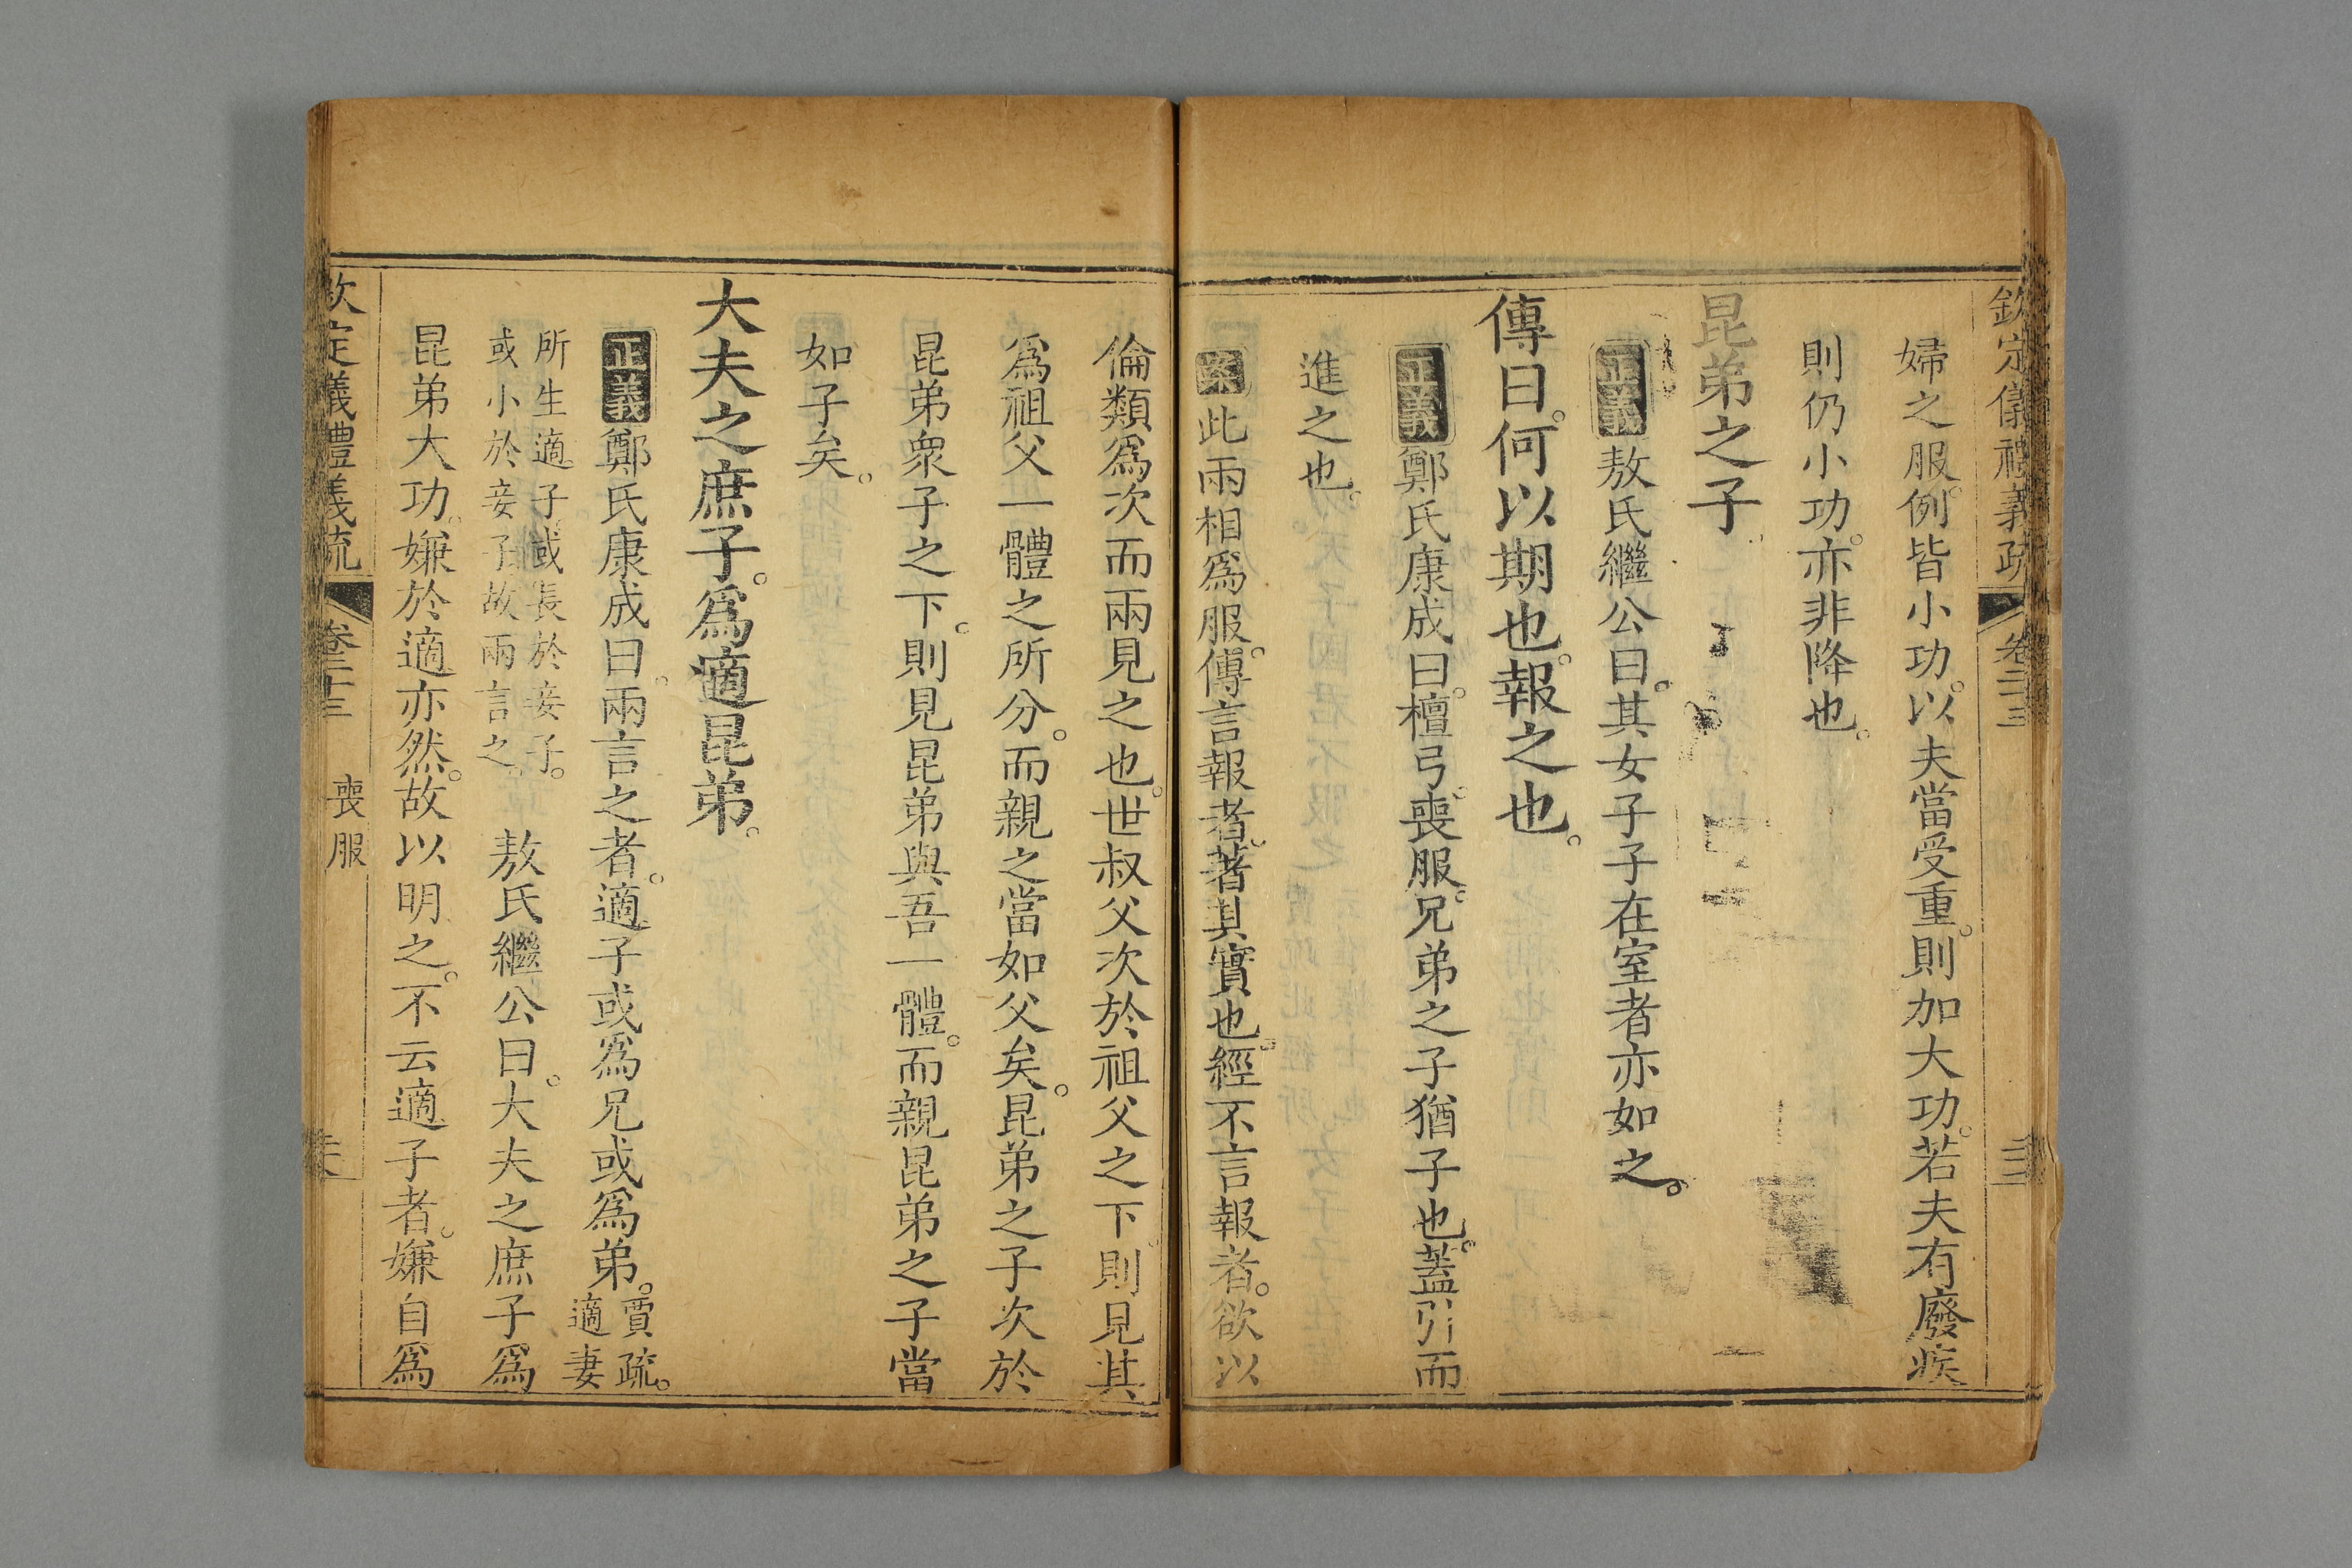 欽定儀禮義疏 卷二十三
婦之服。例皆小功。以夫當受重。則加大功。若夫有廢疾
則仍小功。亦非降也。
昆弟之子
正義敖氏繼公曰。其女子子在室者亦如之。
傳曰。何以期也。報之也。
正義鄭氏康成曰。檀弓。喪服。兄弟之子猶子也。蓋引而
進之也。
案此兩相爲服。傳言報者。著其實也。經不言報者。欲以
倫類爲次而兩見之也。世叔父次於祖父之下。則見其
爲祖父一體之所分。而親之當如父矣。昆弟之子次於
昆弟衆子之下。則見昆弟與吾一體。而親昆弟之子當
如子矣。
大夫之庶子。爲適昆弟。
正義鄭氏康成曰。兩言之者。適子或爲兄或爲弟。賈疏。適妻
所生適子。或長於妾子。或小於妾子。故兩言之。 敖氏繼公曰。大夫之庶子爲
昆弟大功。嫌於適亦然。故以明之。不云適子者。嫌自爲
欽定儀禮義疏 卷二十三 喪服